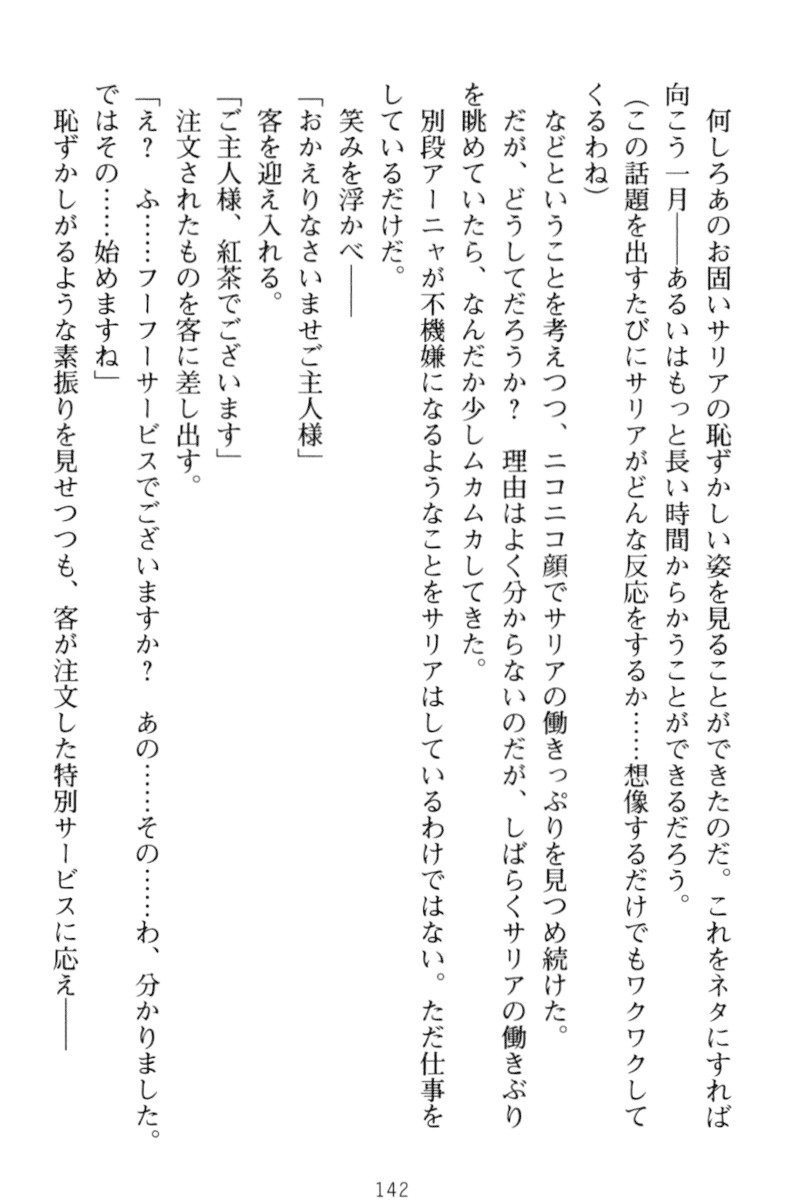 何しろあのお固いサリアの恥ずかしい姿を見ることができたのだ。これをネタにすれば
向こう一月――あるいはもっと長い時間からかうことができるだろう。
(この話題を出すたびにサリアがどんな反応をするか……想像するだけでもワクワクして
くるわね)
などということを考えつつ、ニコニコ顔でサリアの働きっぷりを見つめ続けた。
だが、どうしてだろうか?　理由はよく分からないのだが、しばらくサリアの働きぶり
を眺めていたら、なんだか少しムカムカしてきた。
別段アーニャが不機嫌になるようなことをサリアはしているわけではない。ただ仕事を
しているだけだ。
笑みを浮かべ――
「おかえりなさいませご主人様」
客を迎え入れる。
「ご主人様、紅茶でございます」
注文されたものを客に差し出す。
「え?　ふ……フーフーサービスでございますか?　あの……その……わ、分かりました。
ではその……始めますね」
恥ずかしがるような素振りを見せつつも、客が注文した特別サービスに応え――
142